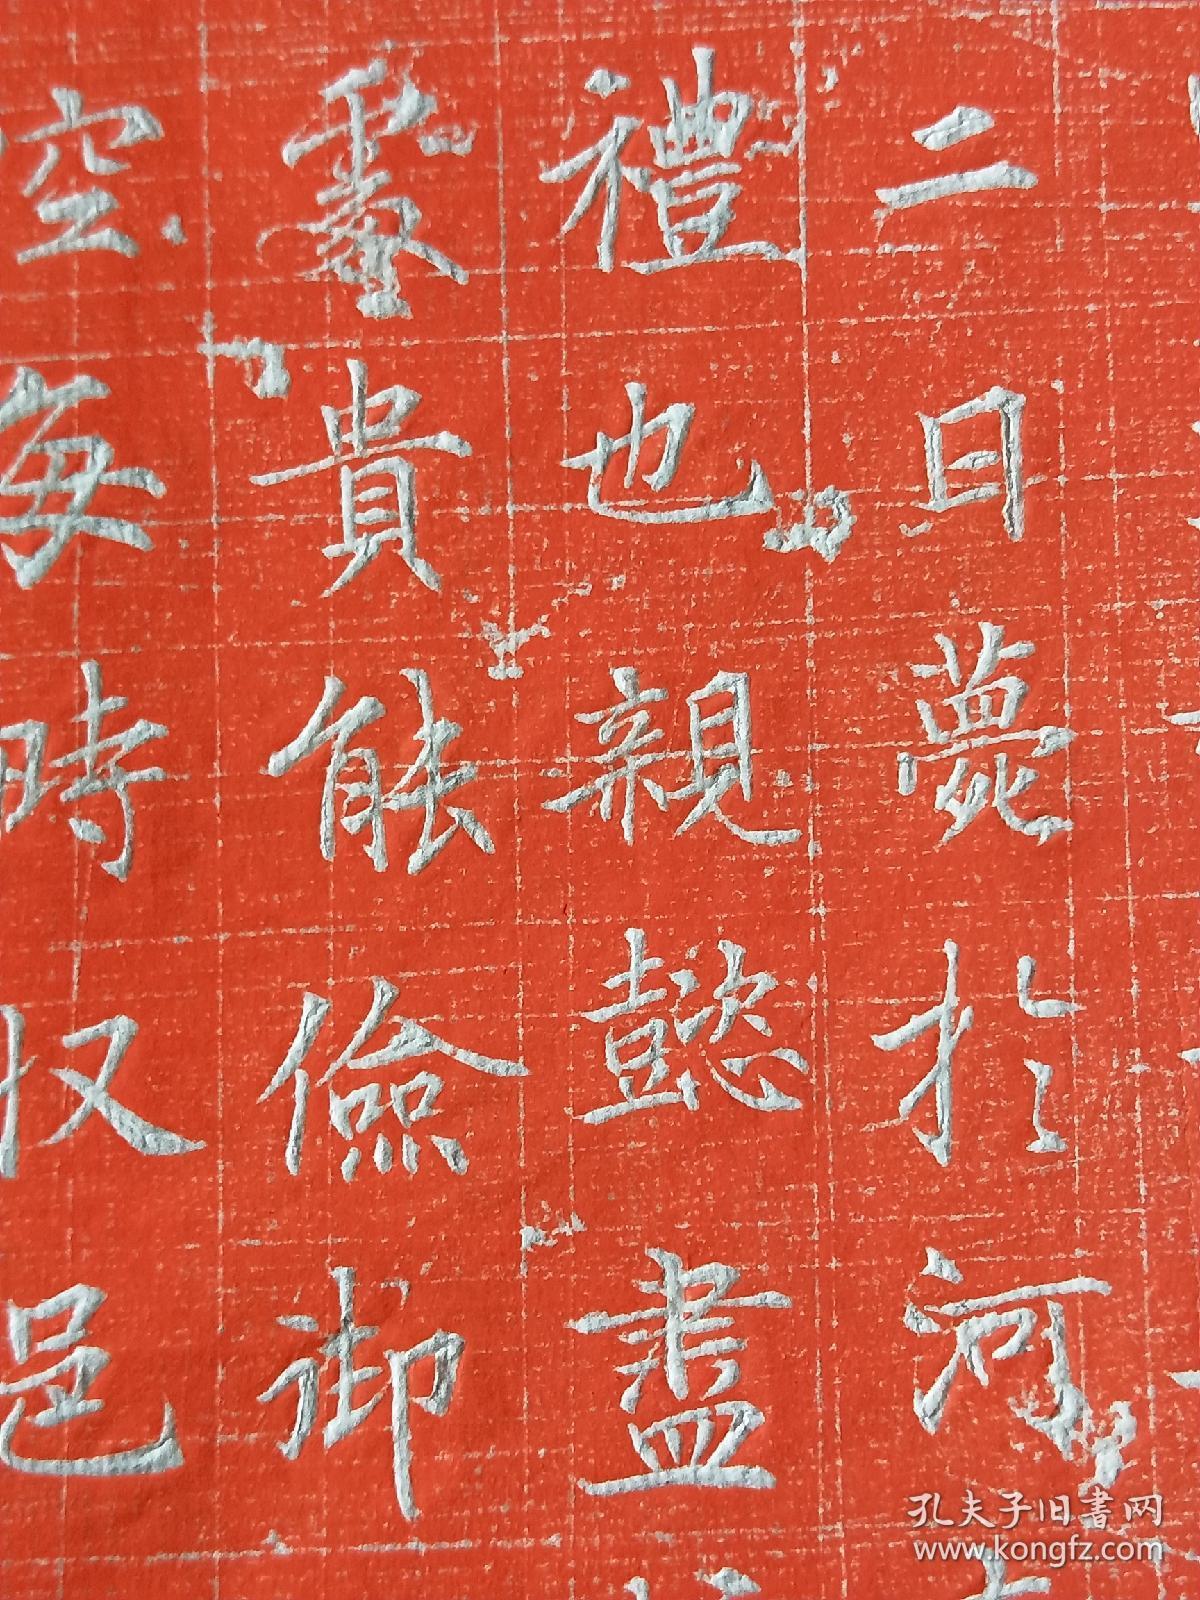 二日薨於河
禮也親懿盡
貴能儉御
空每時权邑
孔夫子旧書网
www.kongfz.com